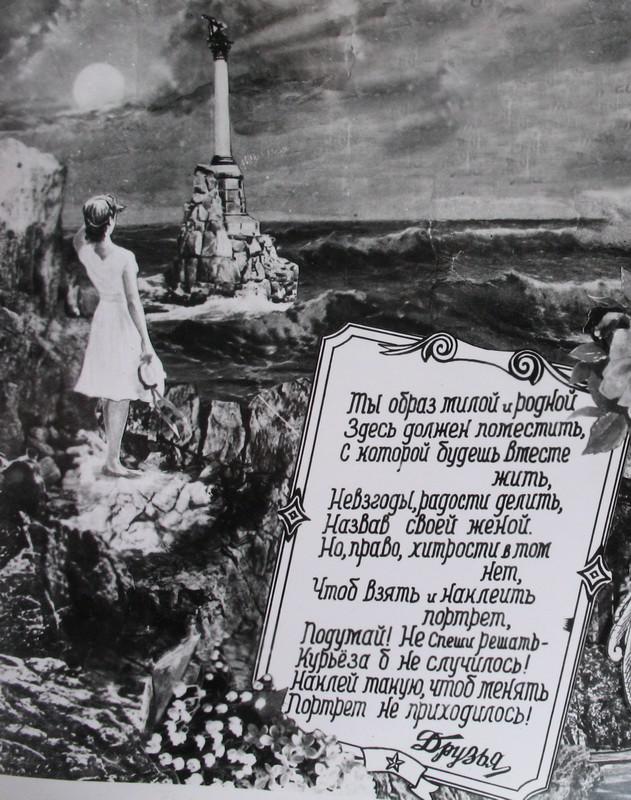 Ты образ милой и родной
Здесь должен поместить,
С которой будешь вместе
жить,
Невзгоды, радости делить,
Назвав своей женой.
Но, право, хитрости в том
нет,
Чтоб взять и наклеить
портрет,
Подумай! Не спеши решать-
Курьёза б не случилось!
Наклей такую, чтоб менять
Портрет не приходилось!
Друзья